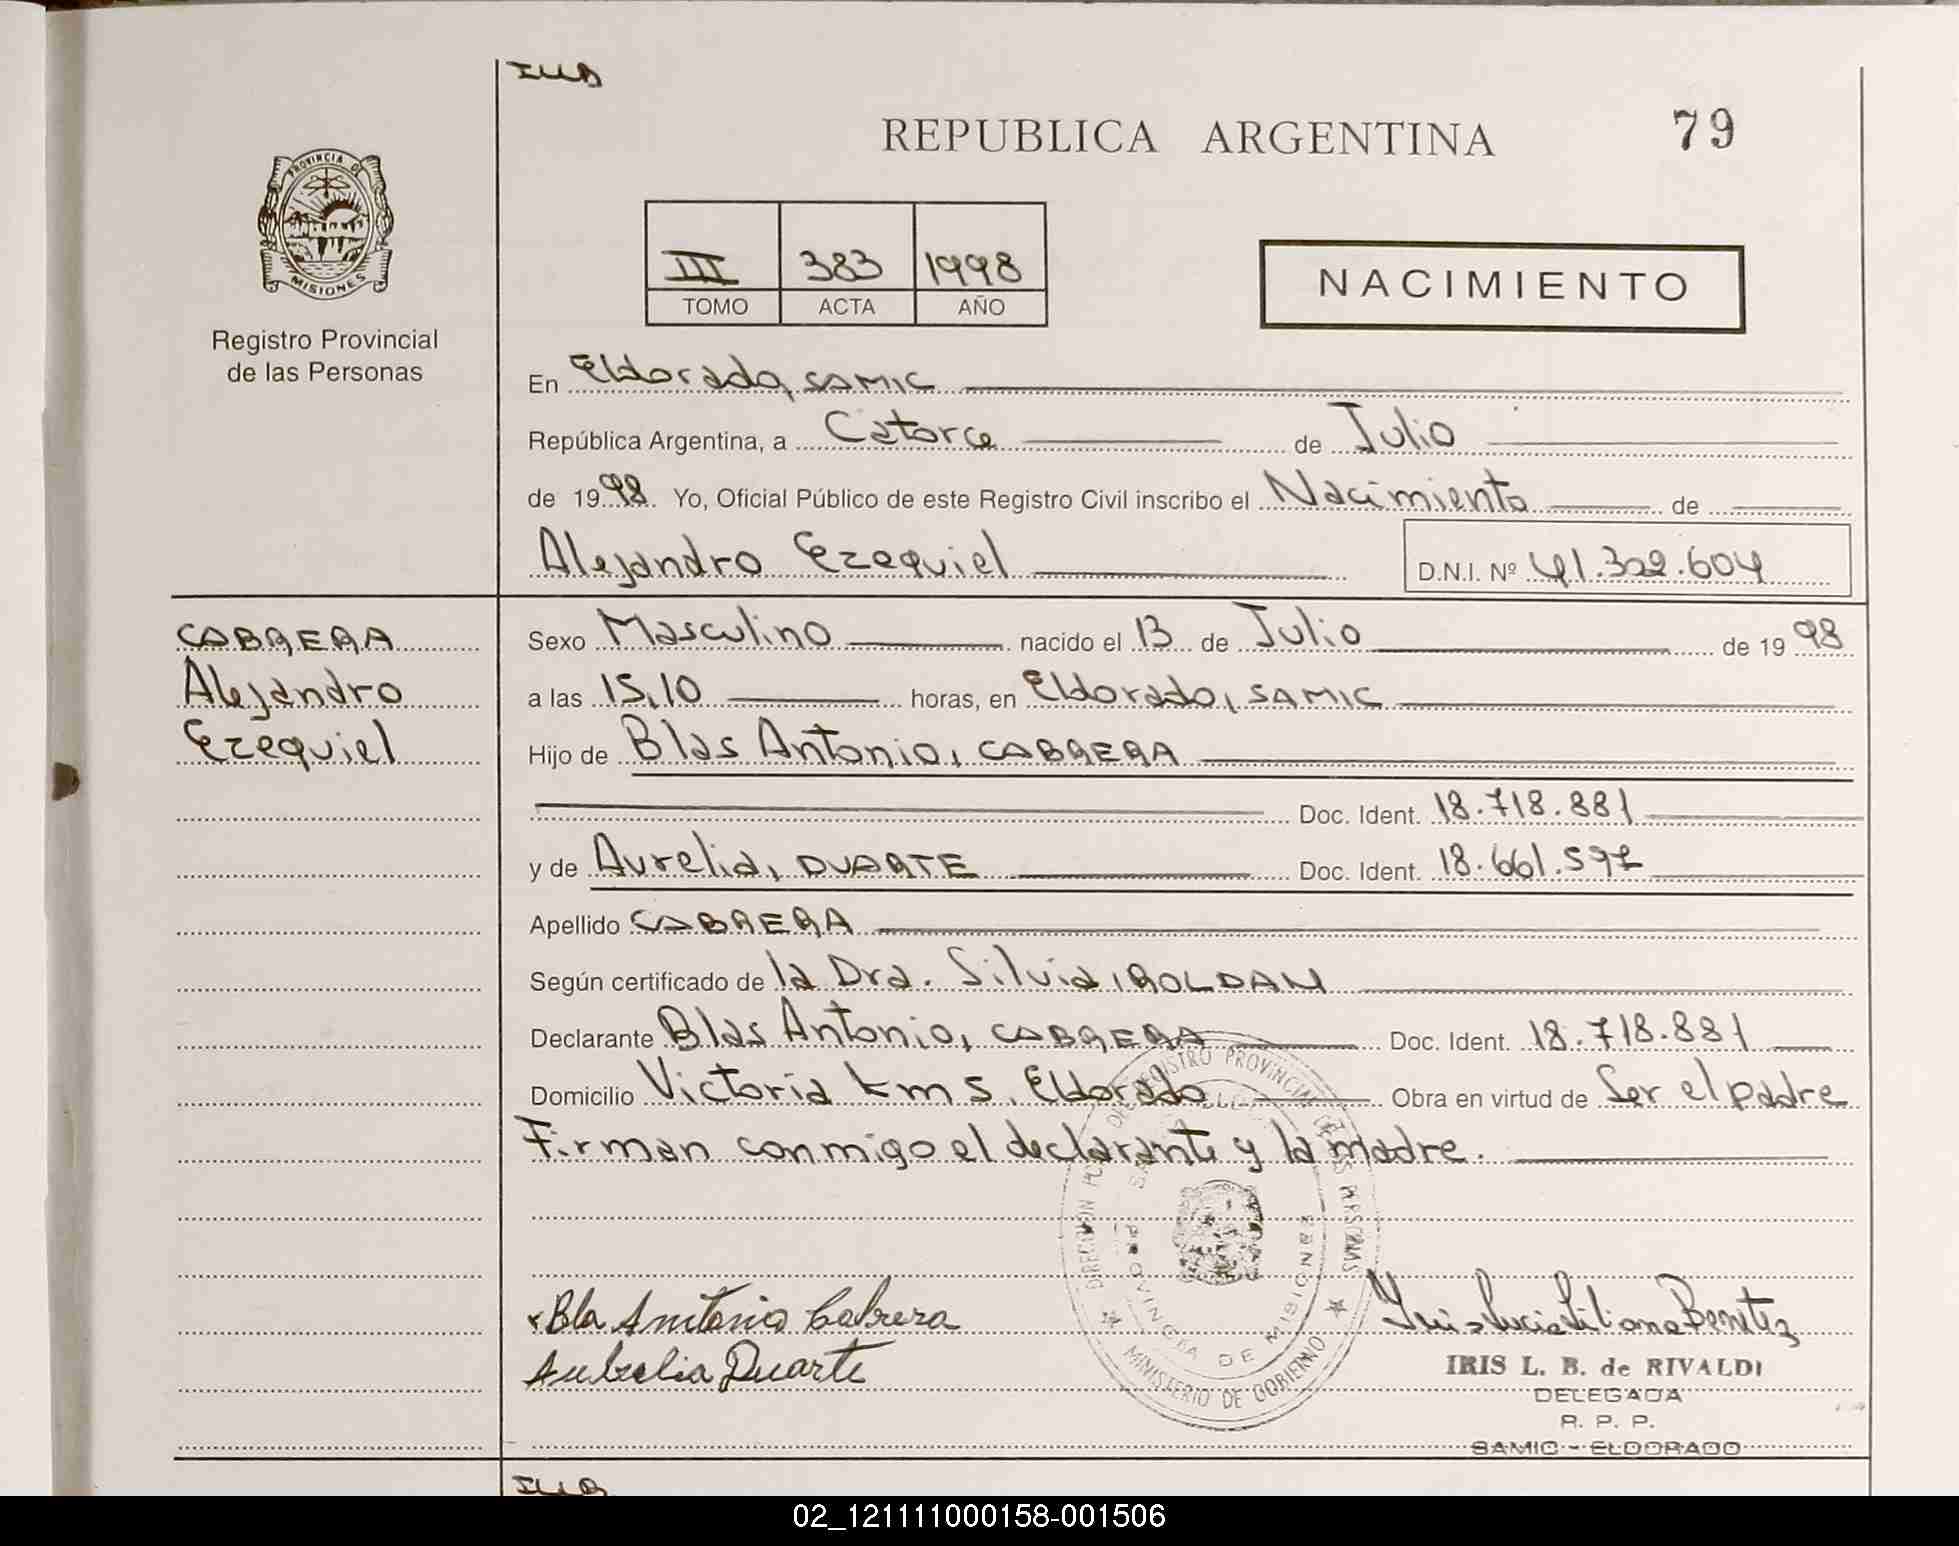 ILLB
REPUBLICA ARGENTINA 79
PROVINCIA DE
MISIONES
Registro Provincial
de las Personas
III 383 1998
TOMO ACTA AÑO
NACIMIENTO
En Eldorado, SAMIC
República Argentina, a Catorce de Julio
de 1998 Yo, Oficial Público de este Registro Civil inscribo el Nacimiento de
Alejandro Ezequiel D.N.I. Nº 41.322.604
CABRERA
Alejandro
Ezequiel
Sexo Masculino nacido el 13 de Julio de 1998
a las 15,10 horas, en Eldorado, SAMIC
Hijo de Blas Antonio, CABRERA
Doc. Ident. 18.718.881
y de Aurelia, DUARTE Doc. Ident. 18.661.597
Apellido CABRERA
Según certificado de la Dra. Silvia, ROLDAN
Declarante Blas Antonio, CABRERA Doc. Ident. 18.718.881
Domicilio Victoria km 5. Eldorado Obra en virtud de Ser el padre
Firman conmigo el declarante y la madre.
REGISTRO PROVINCIAL DE LAS PERSONAS
PROVINCIA DE MISIONES
MINISTERIO DE GOBIERNO
Bla Anitonio Cabrera
Aubrelia Duarte
Iris Lucia Liliana Benitez
IRIS L. B. de RIVALDI
DELEGADA
R. P. P.
SAMIC - ELDORADO
ILLB
02_121111000158-001506